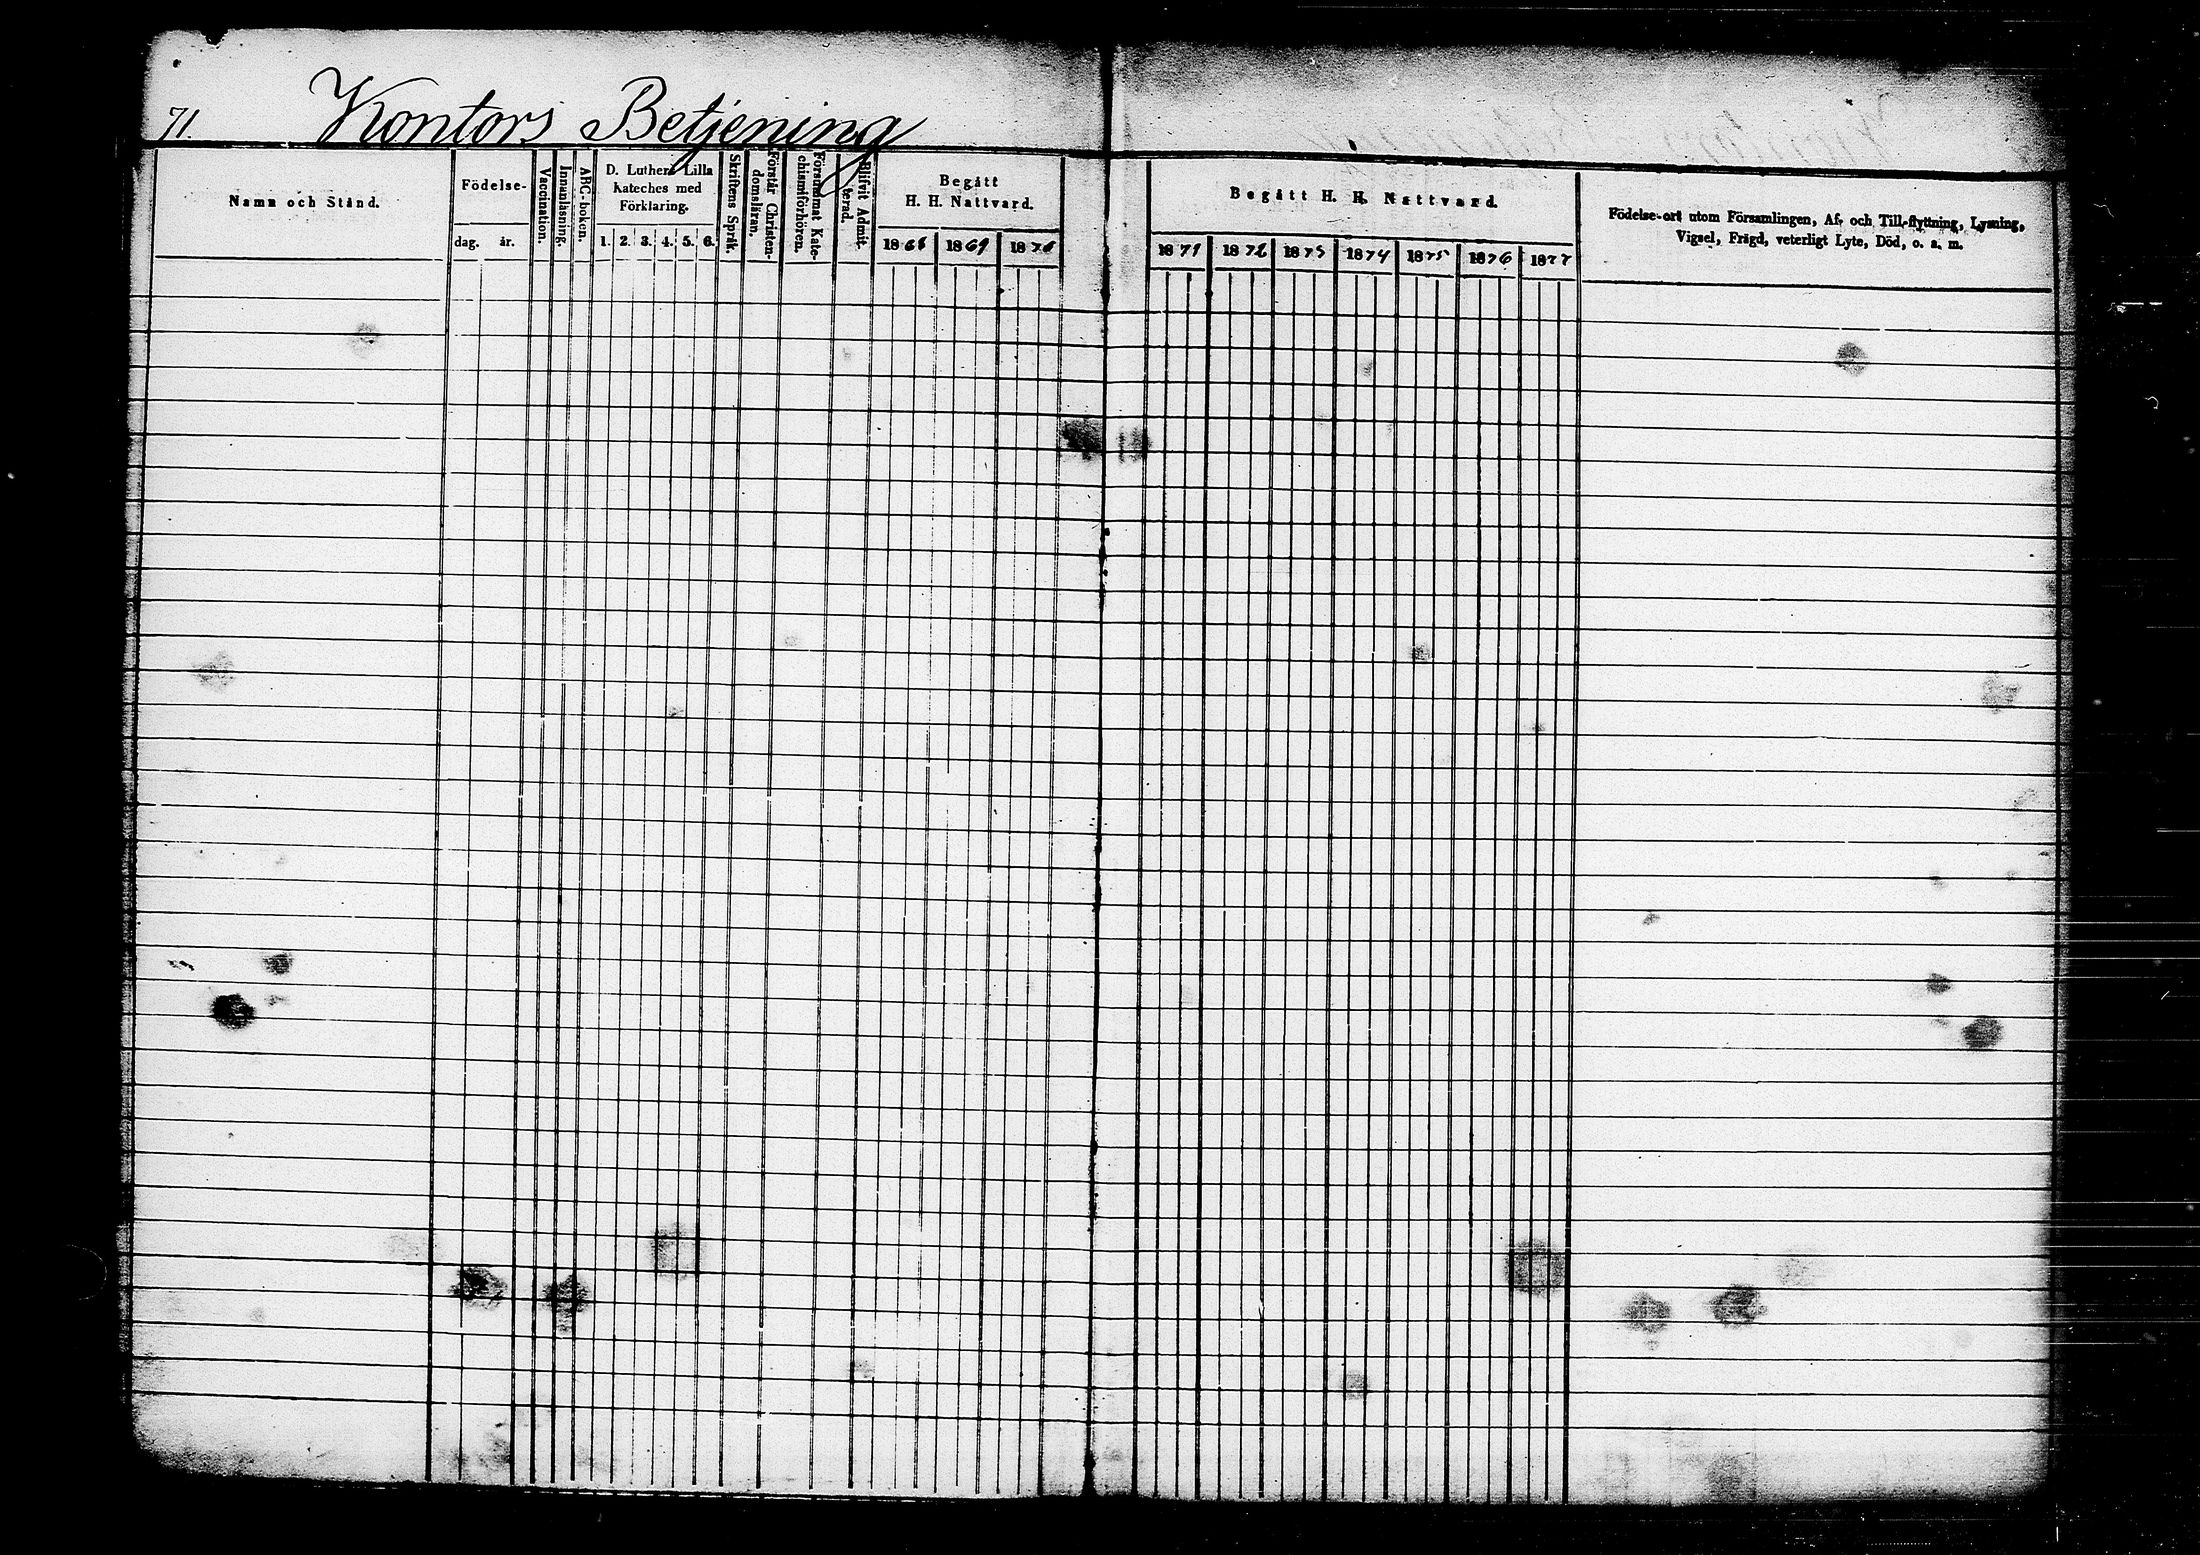 71. Kontors Betjening
Namn och Stånd.
Födelse-
dag. år.
Vaccination.
Innanläsning.
ABC-boken.
D. Luthers Lilla
Kateches med
Förklaring.
1. 2. 3. 4. 5. 6.
Skriftens Språk.
Förstår Christen-
domsläran.
Försummat Kate-
chismiförhören.
Blifvit Admit-
terad.
Begått
H. H. Nattvard.
1868 1869 1870
Begått H. H. Nattvard.
1871 1872 1873 1874 1875 1876 1877
Födelse-ort utom Församlingen, Af- och Till-flyttning, Lysning,
Vigsel, Frägd, veterligt Lyte, Död, o. s. m.